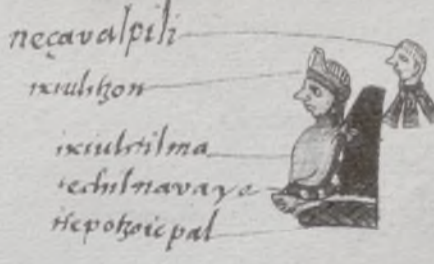 neçavalpili
ixiuhtzon
ixiuhtilma
techilnavayo
itepotzoicpal